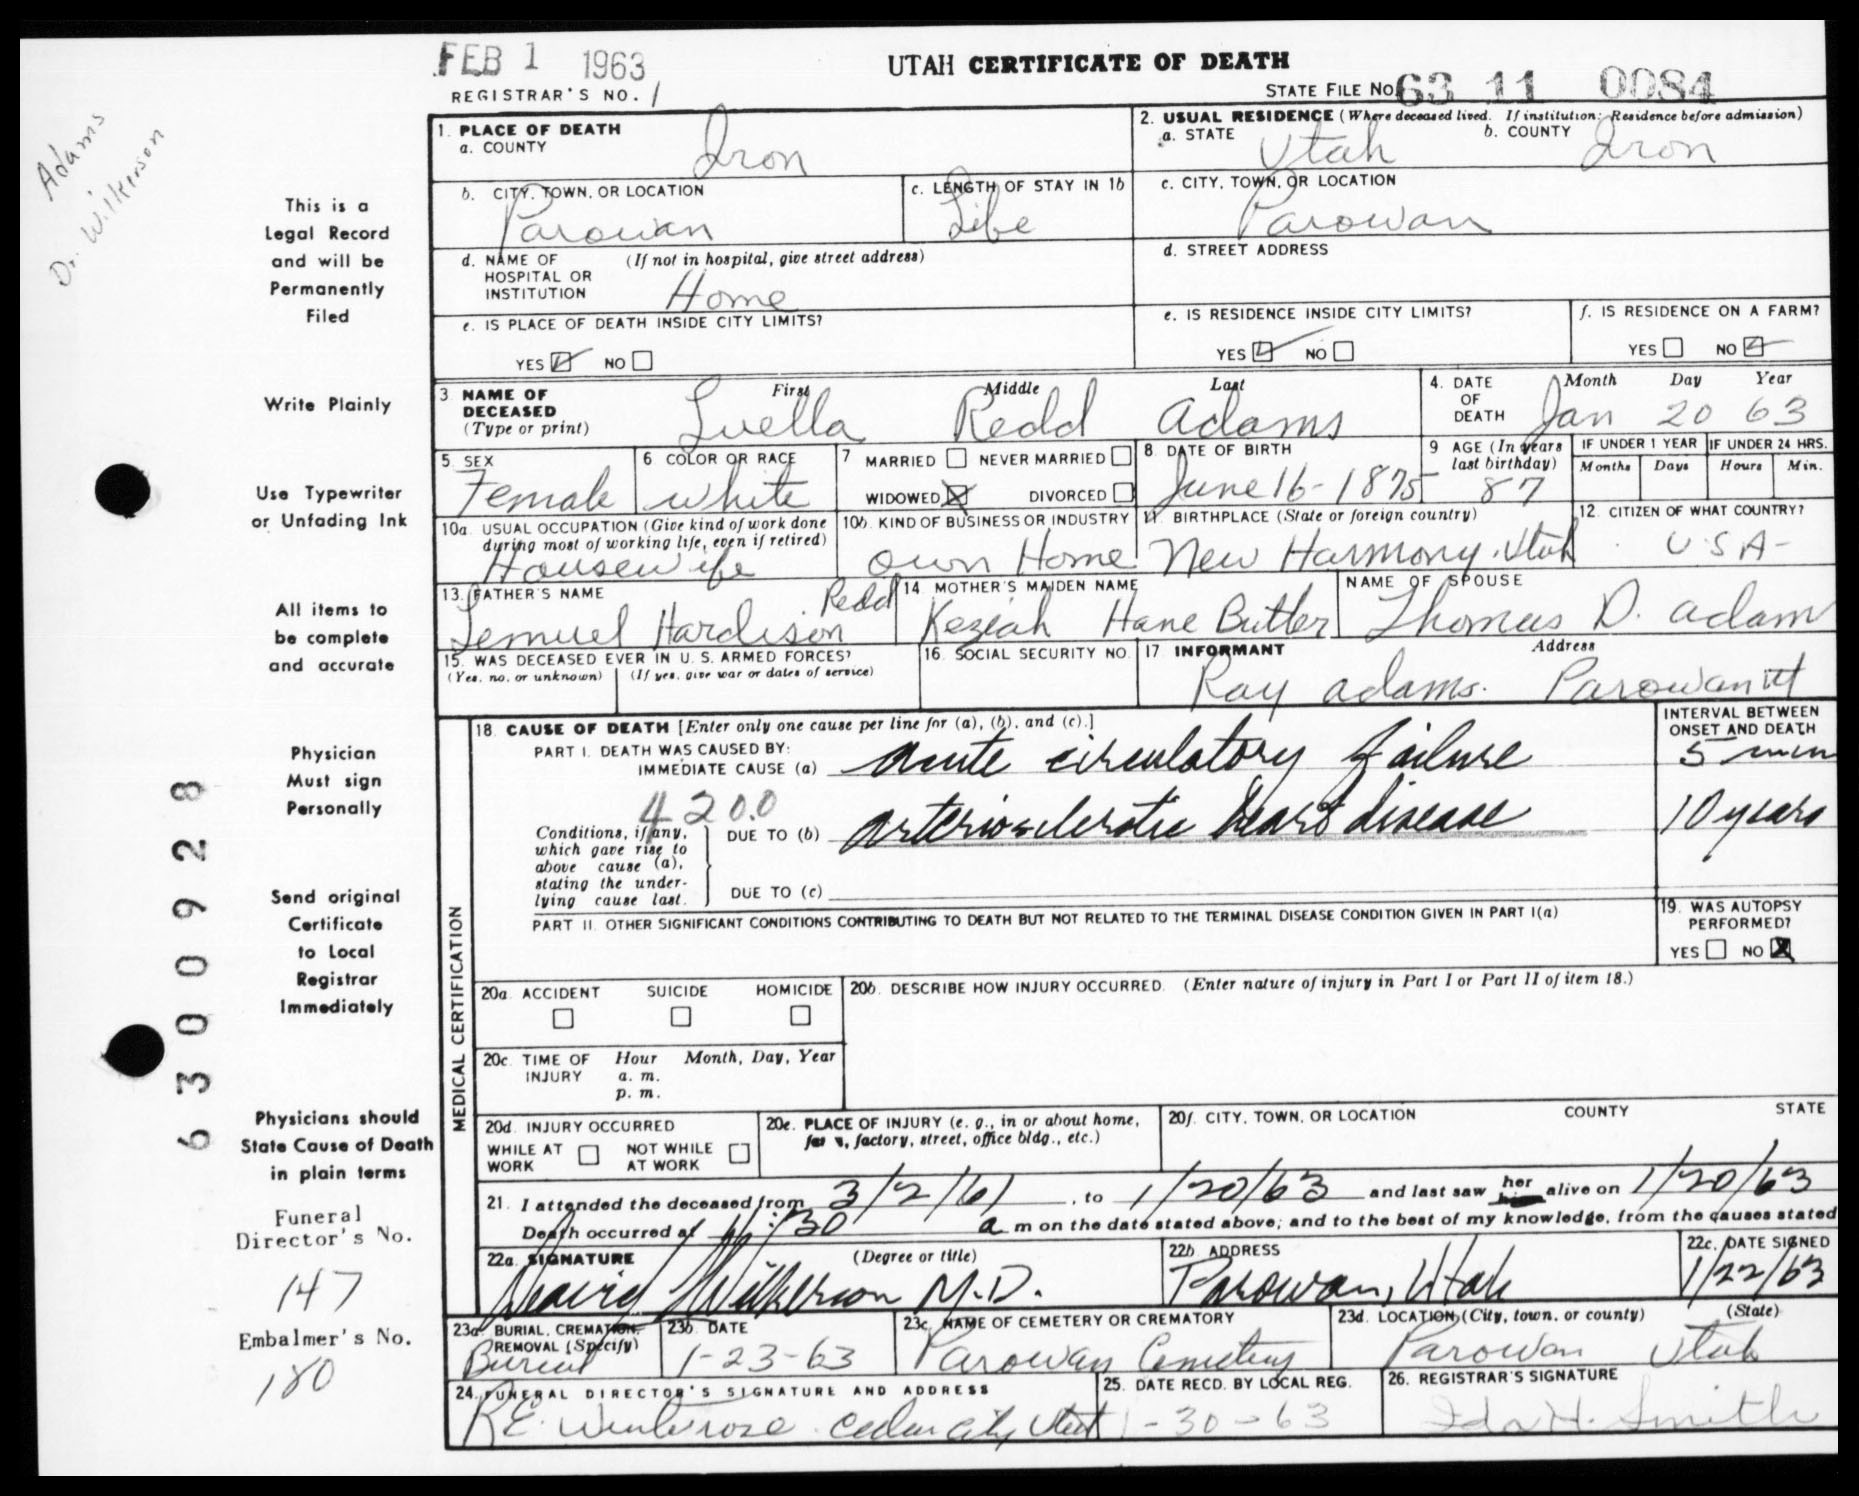 FEB 1 1963
UTAH CERTIFICATE OF DEATH
REGISTRAR'S NO. 1
STATE FILE NO. 63 11 0084
Adams
Dr. Wilkerson
This is a
Legal Record
and will be
Permanently
Filed
Write Plainly
Use Typewriter
or Unfading Ink
All items to
be complete
and accurate
Physician
Must sign
Personally
Send original
Certificate
to Local
Registrar
Immediately
Physicians should
State Cause of Death
in plain terms
Funeral
Director's No.
147
Embalmer's No.
180
6300928
1. PLACE OF DEATH
a. COUNTY Iron
2. USUAL RESIDENCE (Where deceased lived. If institution: Residence before admission)
a. STATE Utah b. COUNTY Iron
b. CITY, TOWN, OR LOCATION Parowan
c. LENGTH OF STAY IN 1b Life
c. CITY, TOWN, OR LOCATION Parowan
d. NAME OF (If not in hospital, give street address)
HOSPITAL OR
INSTITUTION Home
d. STREET ADDRESS
e. IS PLACE OF DEATH INSIDE CITY LIMITS?
YES NO
e. IS RESIDENCE INSIDE CITY LIMITS?
YES NO
f. IS RESIDENCE ON A FARM?
YES NO
3 NAME OF First Middle Last
DECEASED
(Type or print) Luella Redd Adams
4. DATE Month Day Year
OF
DEATH Jan 20 63
5. SEX Female
6 COLOR OR RACE white
7 MARRIED NEVER MARRIED
WIDOWED X DIVORCED
8. DATE OF BIRTH June 16-1875
9 AGE (In years
last birthday) 87
IF UNDER 1 YEAR IF UNDER 24 HRS.
Months Days Hours Min.
10a. USUAL OCCUPATION (Give kind of work done
during most of working life, even if retired)
Housewife
10b. KIND OF BUSINESS OR INDUSTRY
own Home
11. BIRTHPLACE (State or foreign country)
New Harmony, Utah
12. CITIZEN OF WHAT COUNTRY?
U S A-
13. FATHER'S NAME Redd
Lemuel Hardison
14. MOTHER'S MAIDEN NAME
Keziah Hane Butler
NAME OF SPOUSE
Thomas D. Adam
15. WAS DECEASED EVER IN U. S. ARMED FORCES?
(Yes, no, or unknown) (If yes, give war or dates of service)
16. SOCIAL SECURITY NO.
17. INFORMANT Address
Ray Adams. Parowan Ut
MEDICAL CERTIFICATION
18. CAUSE OF DEATH [Enter only one cause per line for (a), (b), and (c).]
INTERVAL BETWEEN
ONSET AND DEATH
PART I. DEATH WAS CAUSED BY:
IMMEDIATE CAUSE (a) Acute circulatory failure 5 min
4200
Conditions, if any,
which gave rise to
above cause (a),
stating the under-
lying cause last.
DUE TO (b) arteriosclerotic heart disease 10 years
DUE TO (c)
PART II. OTHER SIGNIFICANT CONDITIONS CONTRIBUTING TO DEATH BUT NOT RELATED TO THE TERMINAL DISEASE CONDITION GIVEN IN PART I(a)
19. WAS AUTOPSY
PERFORMED?
YES NO X
20a. ACCIDENT SUICIDE HOMICIDE
20b. DESCRIBE HOW INJURY OCCURRED. (Enter nature of injury in Part I or Part II of item 18.)
20c. TIME OF Hour Month, Day, Year
INJURY a. m.
p. m.
20d. INJURY OCCURRED
WHILE AT NOT WHILE
WORK AT WORK
20e. PLACE OF INJURY (e. g., in or about home,
farm, factory, street, office bldg., etc.)
20f. CITY, TOWN, OR LOCATION COUNTY STATE
21. I attended the deceased from 3/2/61, to 1/20/63 and last saw her alive on 1/20/63
Death occurred at 11:30 a m on the date stated above; and to the best of my knowledge, from the causes stated
22a. SIGNATURE (Degree or title)
David Wilkerson M.D.
22b. ADDRESS
Parowan, Utah
22c. DATE SIGNED
1/22/63
23a. BURIAL, CREMATION,
REMOVAL (Specify)
Burial
23b. DATE
1-23-63
23c. NAME OF CEMETERY OR CREMATORY
Parowan Cemetery
23d. LOCATION (City, town, or county) (State)
Parowan Utah
24. FUNERAL DIRECTOR'S SIGNATURE AND ADDRESS
Cedar City, Utah
25. DATE RECD. BY LOCAL REG.
1-30-63
26. REGISTRAR'S SIGNATURE
Ida H. Smith